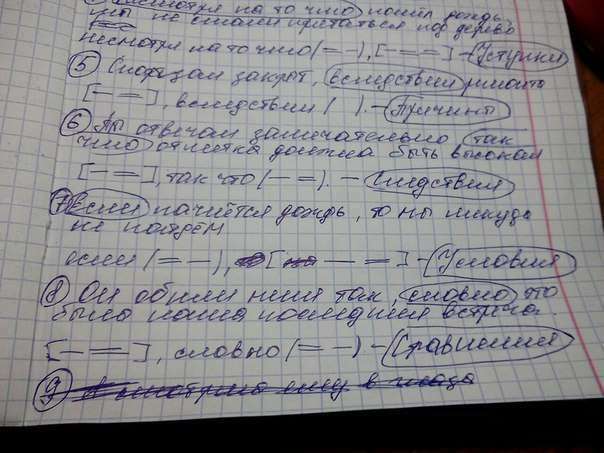 несмотря на то что пошёл дождь,
мы не стали прятаться под дерево
несмотря на то что (= —), [— = =] – Уступки
⑤ Спортзал закрыт, вследствии ремонта
[— =], вследствии ( ). – Причины
⑥ Ты отвечал замечательно так
что отметка должна быть высокая
[— =], так что (— =). – Следствия
⑦ Если начнётся дождь, то мы никуда
не пойдём
если (= —), [— =] – Условия
⑧ Он обнял меня так, словно это
была наша последняя встреча.
[— =], словно (= —) – Сравнения
⑨